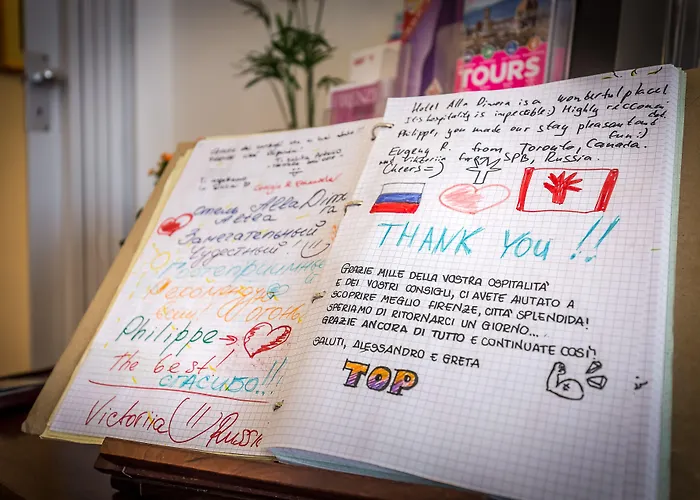 TOURS
Grazie
Giorgia & Emanuele
отель Alla Dimora
Замечательный
Чудесный!
Гостеприимные
Рекомендую
всем! Огонь
Philippe →
the best!
СПАСИБО!!!
Victoriia Russia
Hotel Alla Dimora is a wonderful place!
Its hospitality is impecible:) Highly reccomended.
Philippe, you made our stay pleasant and
fun:)
Evgeny R. from Toronto, Canada.
and Viktoriia from SPB, Russia.
Cheers =)
THANK YOU !!
GRAZIE MILLE DELLA VOSTRA OSPITALITÀ
E DEI VOSTRI CONSIGLI, CI AVETE AIUTATO A
SCOPRIRE MEGLIO FIRENZE, CITTÀ SPLENDIDA!
SPERIAMO DI RITORNARCI UN GIORNO...
GRAZIE ANCORA DI TUTTO E CONTINUATE COSÌ!
SALUTI, ALESSANDRO E GRETA
TOP